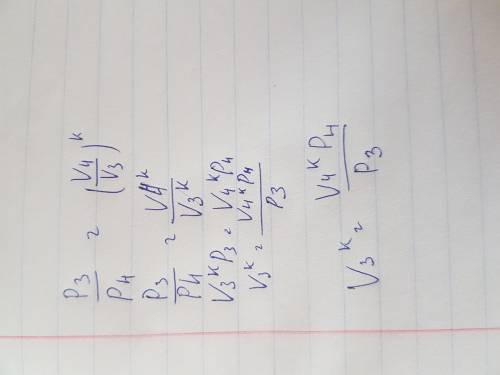 P3/P4 = (V4/V3)^k
P3/P4 = V4^k/V3^k
V3^k P3 = V4^k P4
V3^k = V4^k P4/P3
V3^k = V4^k P4/P3